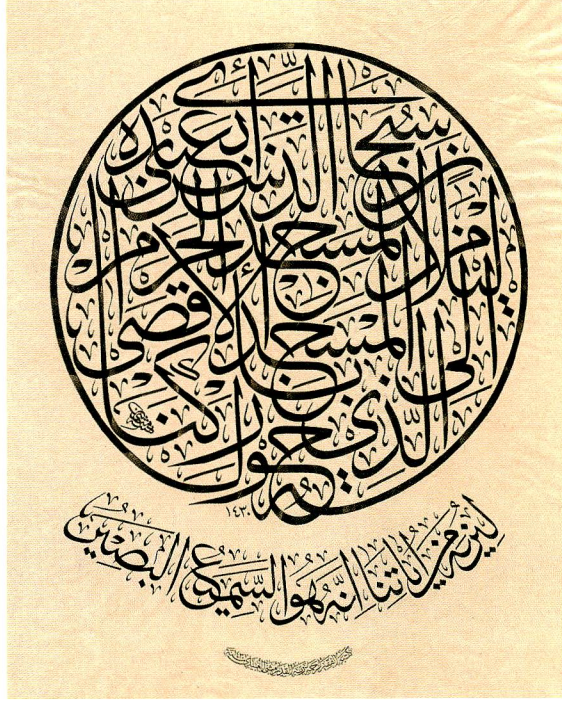 سُبْحَانَ الَّذِي أَسْرَى بِعَبْدِهِ
لَيْلًا مِنَ الْمَسْجِدِ الْحَرَامِ
إِلَى الْمَسْجِدِ الْأَقْصَى
الَّذِي بَارَكْنَا حَوْلَهُ
١٤٣٠
لِنُرِيَهُ مِنْ آيَاتِنَا إِنَّهُ هُوَ السَّمِيعُ الْبَصِيرُ